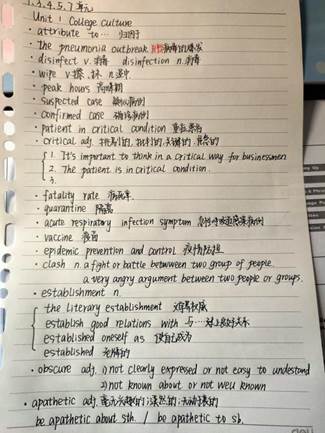 1.3.4.5.7单元
Unit 1 College Culture
· attribute to… 归因于
· the pneumonia outbreak 肺炎病毒的爆发
· disinfect v.消毒 disinfection n.消毒
· wipe v.擦,抹 n.
· peak hours 高峰期
· suspected case 疑似病例
· confirmed case 确诊病例
· patient in critical condition 重症患者
· critical adj. 批判的,关键的,危急的
1. It's important to think in a critical way for businessmen
2. The patient is in critical condition.
3.
· fatality rate 病死率
· quarantine 隔离
· acute respiratory infection symptom 急性呼吸道感染病例
· vaccine 疫苗
· epidemic prevention and control 疫情防控
· clash n. a fight or battle betwween two group of people.
a very angry argument between two people or groups.
· establishment n.
the literary establishment 文学权威
establish good relations with 与…建立良好关系
established oneself as 使自己成为
established 老牌的
· obscure adj. 1) not clearly expressed or not easy to undestand
2) not known about or not well known
· apathetic adj. 毫无兴趣的;漠然的;无动于衷的
be apathetic about sth. / be apathetic to sb.
deli